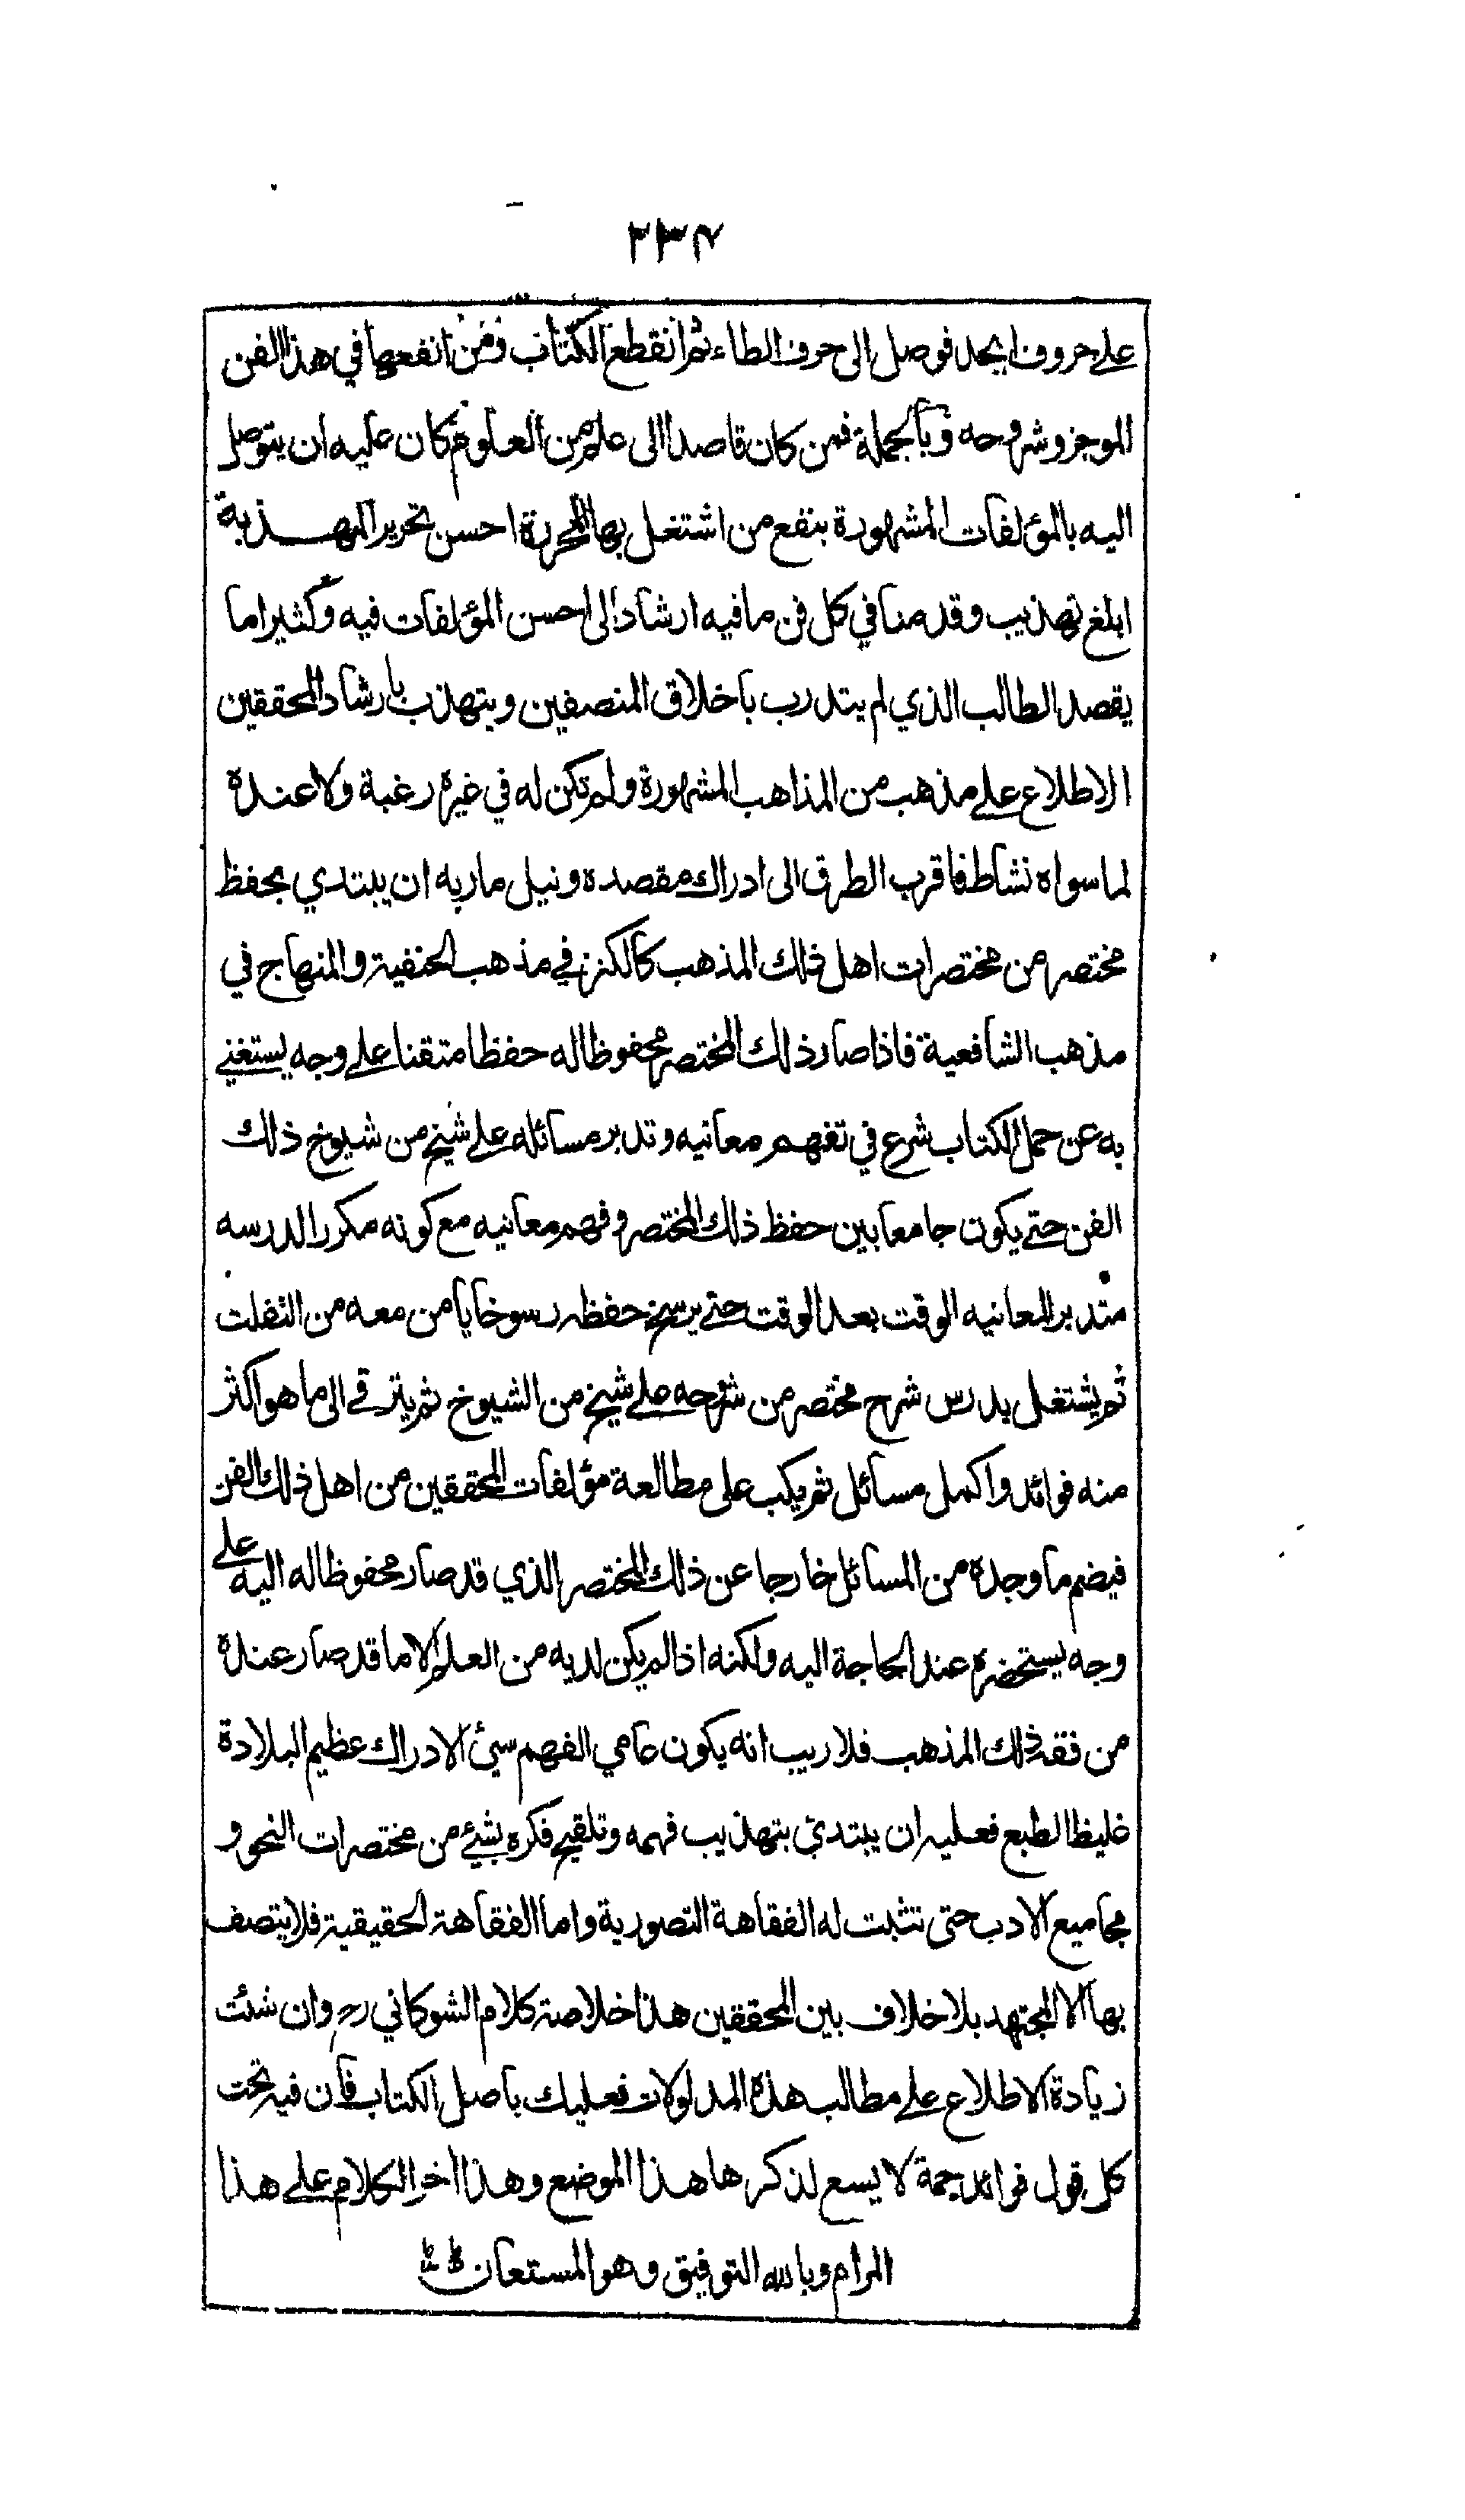 ٢٣٧
على حروف ابجد فوصل الى حرف الطاء ثم انقطع الكتاب ومن انفعها في هذا الفن
الموجز وشروحه وبالجملة فمن كان قاصدا الى علم من العلوم كان عليه ان يتوصل
اليه بالمؤلفات المشهورة بنفع من اشتغل بها المحررة احسن تحرير المهذبة
ابلغ تهذيب وقد منا في كل فن مافيه ارشاد الى احسن المؤلفات فيه وكثيراما
يقصد الطالب الذي لم يتدرب باخلاق المنصفين ويتهذب بارشاد المحققين
الاطلاع على مذهب من المذاهب المشهورة ولم تكن له في غيره رغبة ولا عنده
لما سواه نشاط فاقرب الطرق الى ادراك مقصده ونيل ماربه ان يبتدي بحفظ
مختصر من مختصرات اهل ذلك المذهب كالكنز في مذهب الحنفية والمنهاج في
مذهب الشافعية فاذا صار ذلك المختصر محفوظا له حفظا متقنا على وجه يستغني
به عن حمل الكتاب شرع في تفهم معانيه وتدبر مسائله على شيخ من شيوخ ذلك
الفن حتى يكون جامعا بين حفظ ذلك المختصر وفهم معانيه مع كونه مكررا لدرسه
متدبرا لمعانيه الوقت بعد الوقت حتى يرسخ حفظه رسوخا يامن معه من التفلت
ثم يشتغل بدرس شرح مختصر من شروحه على شيخ من الشيوخ ثم يترقى الى ما هو اكثر
منه فوائد واكمل مسائل ثم يكب على مطالعة مؤلفات المحققين من اهل ذلك الفن
فيضم ما وجده من المسائل خارجا عن ذلك المختصر الذي قد صار محفوظا له اليه على
وجه يستحضره عند الحاجة اليه ولكنه اذا لم يكن لديه من العلم الا ما قد صار عنده
من فقه ذلك المذهب فلا ريب انه يكون عامي الفهم سيئ الادراك عظيم البلادة
غليظ الطبع فعليه ان يبتدئ بتهذيب فهمه وتلقيح فكره بشيئ من مختصرات النحو و
مجاميع الادب حتى تثبت له الفقاهة التصورية واما الفقاهة الحقيقية فلا يتصف
بها الا المجتهد بلا خلاف بين المحققين هذا خلاصة كلام الشوكاني رح وان شئت
زيادة الاطلاع على مطالب هذه المدلولات فعليك باصل الكتاب فان فيه تحت
كل قول فوائد جمة لا يسع لذكرها هذا الموضع وهذا اخر الكلام على هذا
المرام وبالله التوفيق وهو المستعان